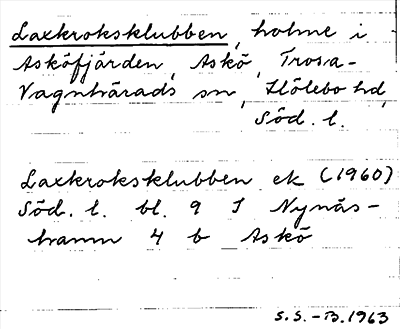 Laxkroksklubben, holme i
Asköfjärden, Askö, Trosa-
Vagnhärads sn, Hölebo hd,
Söd. l.
Laxkroksklubben ek (1960)
Söd. l. bl. 9 I Nynäs-
hamn 4 b Askö
S.S.-B.1963